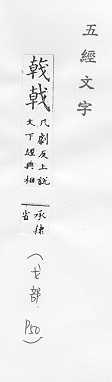 五經文字
戟戟
几劇反上說
文下經典相
承隸
省
(戈部
P50)